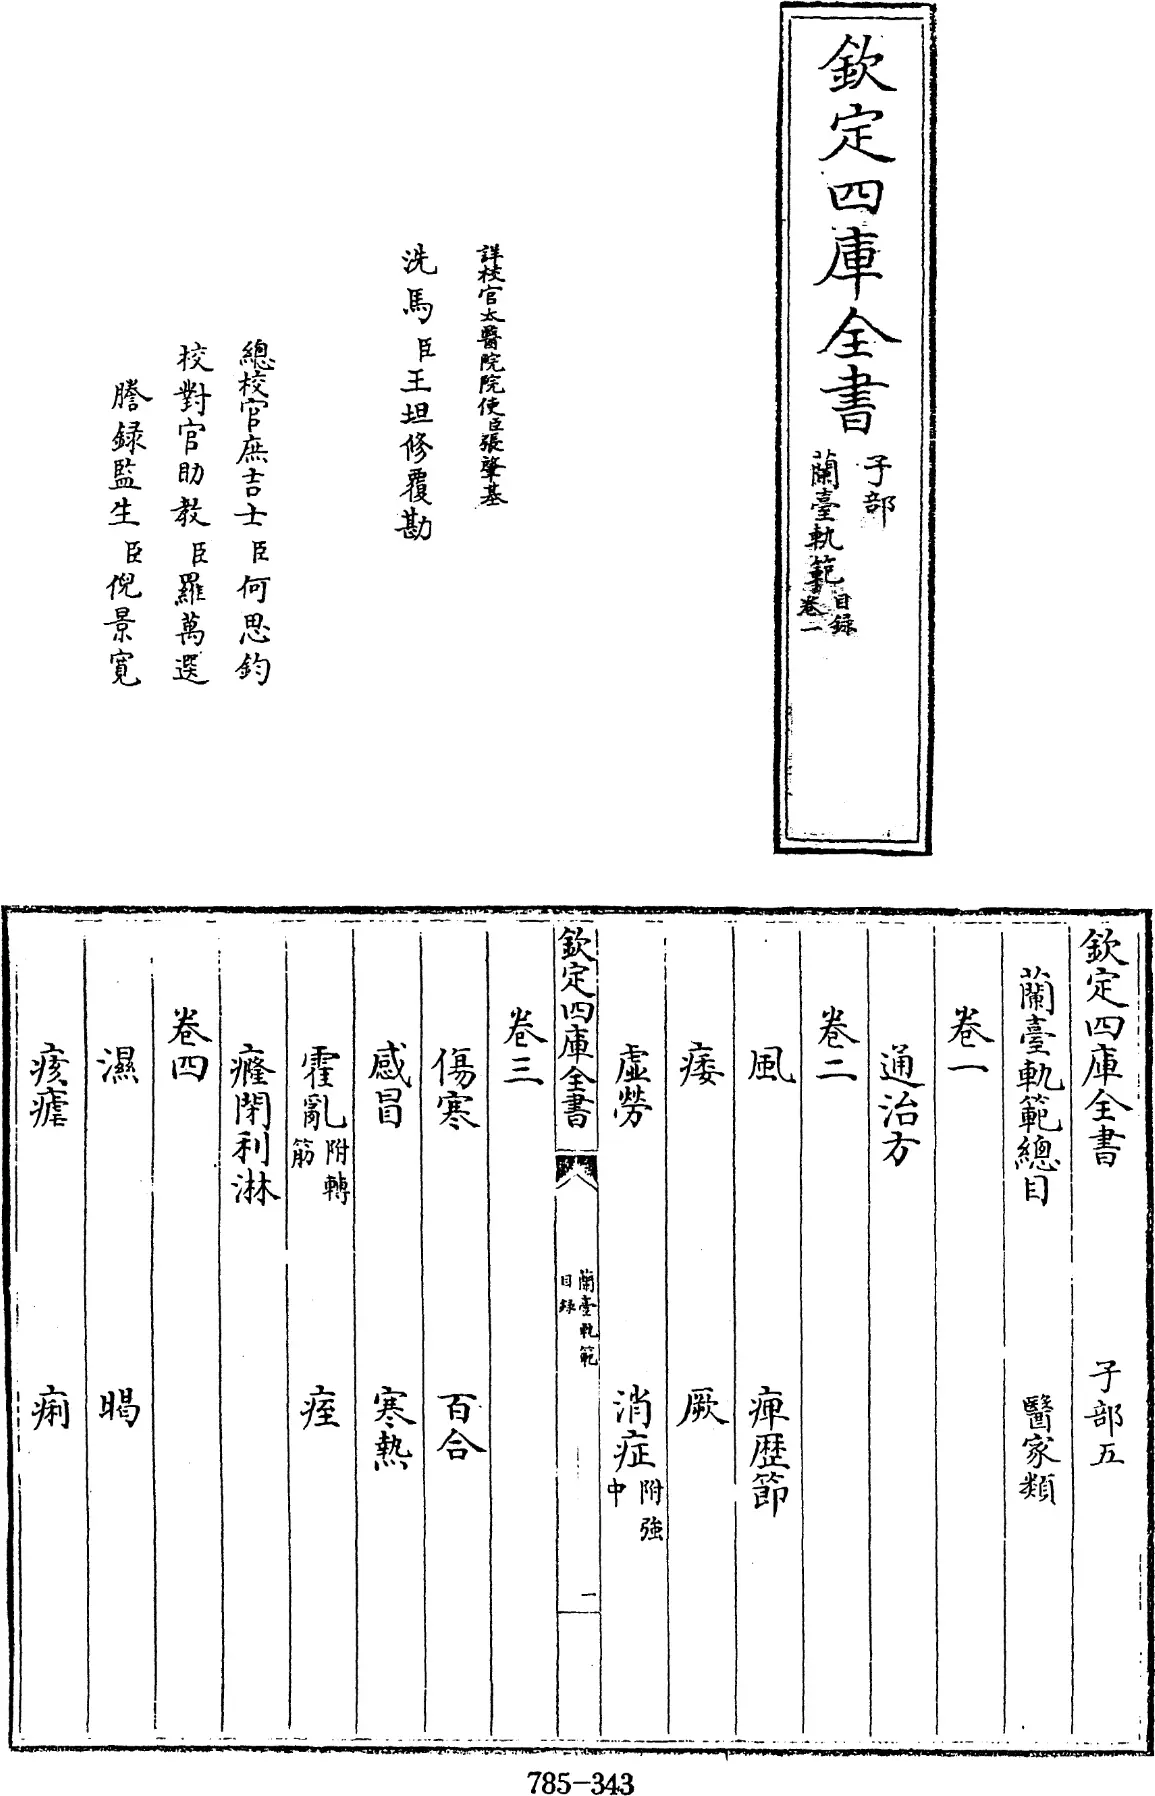 欽定四庫全書
子部
蘭臺軌範
目録
卷一
詳校官太醫院院使臣張肇基
洗馬臣王坦修覆勘
總校官庶吉士臣何思鈞
校對官助教臣羅萬選
謄録監生臣倪景寛
欽定四庫全書 子部五
蘭臺軌範總目 醫家類
卷一
通治方
卷二
風 痺歴節
痿 厥
虛勞 消症附強中
欽定四庫全書 蘭臺軌範目録 一
卷三
傷寒 百合
感冒 寒熱
霍亂附轉筋 痓
癃閉利淋
卷四
濕 暍
痎瘧 痢
785-343